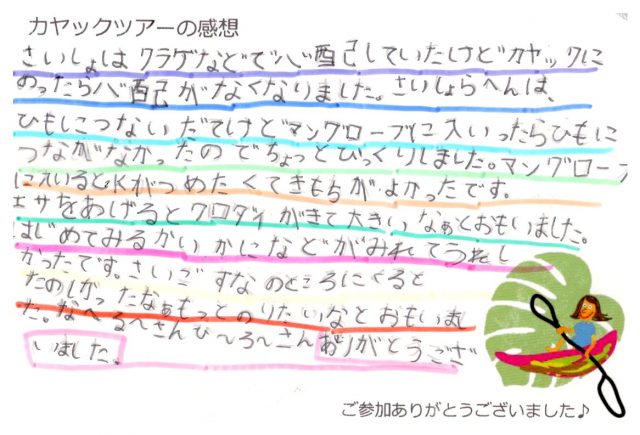 カヤックツアーの感想
さいしょは クラゲなどで心配していたけどカヤックに
のったら心配がなくなりました。さいしょらへんは、
ひもにつないだてけどマングローブに入いったらひもに
つながなかったのでちょっとびっくりしました。マングローブ
に入いると水がつめたくてきもちがよかったです。
エサをあげるとクロダイがきて大きいなぁとおもいました。
はじめてみるかいかになどがみれてうれし
かったです。さいごすなのところにくると
たのしかったなぁもっとのりたいなとおもいまし
た。なへる〜さんひ〜ろ〜さんありがとうござ
いました。
ご参加ありがとうございました♪